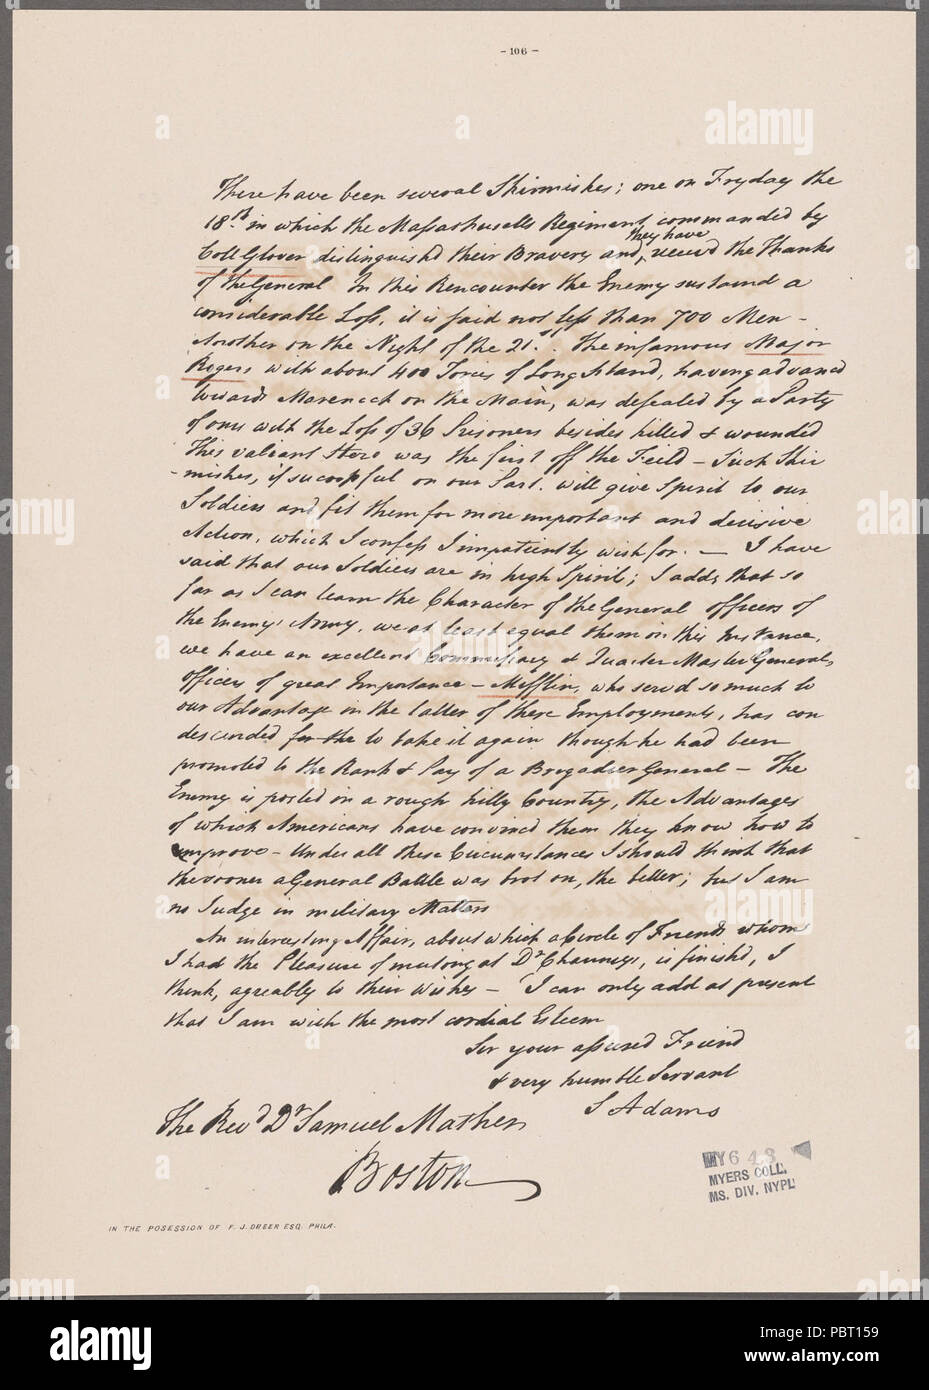 - 106 -
There have been several Skirmishes; one on Fryday the
18th. in which the Massachusetts Regiment commanded by
they have
Coll Glover distinguishd their Bravery and, receivd the Thanks
of the General In this Rencounter the Enemy sustaind a
considerable Loss, it is said not less than 700 Men -
Another on the Night of the 21st. The infamous Major
Rogers with about 400 Tories of Long Island, having advancd
towards Mareneck on the Main, was defeated by a Party
of ours with the Loss of 36 Prisoners besides killed & wounded
This valiant Hero was the first off the Feild - Such Skir
- mishes, if successful on our Part. will give Spirit to our
Soldiers and fit them for more important and decisive
Action, which I confess I impatiently wish for. — I have
said that our Soldiers are in high Spirit; I add, that so
far as I can learn the Character of the General Officers of
the Enemys Army, we at least equal them in this Instance,
we have an excellent Commissary & Quarter Master General,
officers of great Importance - Mifflin, who servd so much to
our Advantage in the latter of these Employments, has con
descended for the to take it again though he had been
promoted to the Rank & Pay of a Brigadier General - The
Enemy is posted in a rough hilly Country, the Advantages
of which Americans have convincd them they know how to
improve - Under all these Circumstances I should think that
the sooner a General Battle was brot on, the better; but I am
no Judge in military Matters
An interesting Affair, about which a Circle of Friends whom
I had the Pleasure of meeting at Dr Chauncys, is finishd, I
think, agreably to their Wishes - I can only add at present
that I am with the most cordial Esteem
Sir your assured Friend
& very humble Servant
S Adams
The Revd Dr Samuel Mather
Boston
MY 643
MYERS COLL.
MS. DIV. NYPL
IN THE POSESSION OF F. J. DREER ESQ. PHILA.
a alamy
alamy
Image ID: PBT159
www.alamy.com